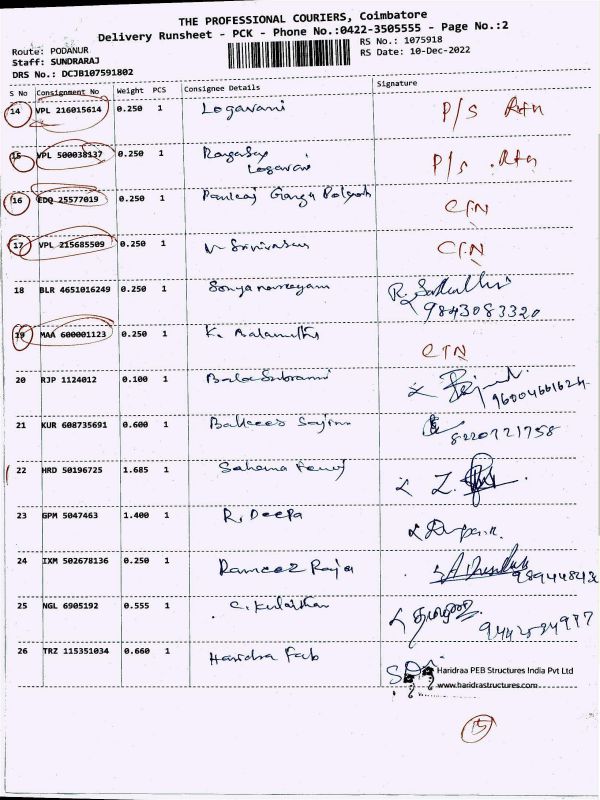 THE PROFESSIONAL COURIERS, Coimbatore
Delivery Runsheet - PCK - Phone No.:0422-3505555 - Page No.:2
Route: PODANUR
RS No.: 1075918
Staff: SUNDRARAJ
RS Date: 10-Dec-2022
DRS No.: DCJB107591802
S No Consignment No Weight PCS Consignee Details Signature
14 VPL 216015614 0.250 1 Logavani P/s Rtn
15 VPL 500038137 0.250 1 P/s Rtn
Logavani
16 EDQ 25577019 0.250 1 Pankaj Ganga CTN
17 VPL 215685509 0.250 1 V Srinivasan CTN
18 BLR 4651016249 0.250 1 R.
9843083320
19 MAA 600001123 0.250 1 K. CTN
20 RJP 1124012 0.100 1
21 KUR 608735691 0.600 1
8220721758
22 HRD 50196725 1.685 1
23 GPM 5047463 1.400 1 R. Deepa
24 IXM 502678136 0.250 1 Rameez Raja
25 NGL 6905192 0.555 1
26 TRZ 115351034 0.660 1 Haridra Fab
Haridraa PEB Structures India Pvt Ltd
www.haridrastructures.com
15